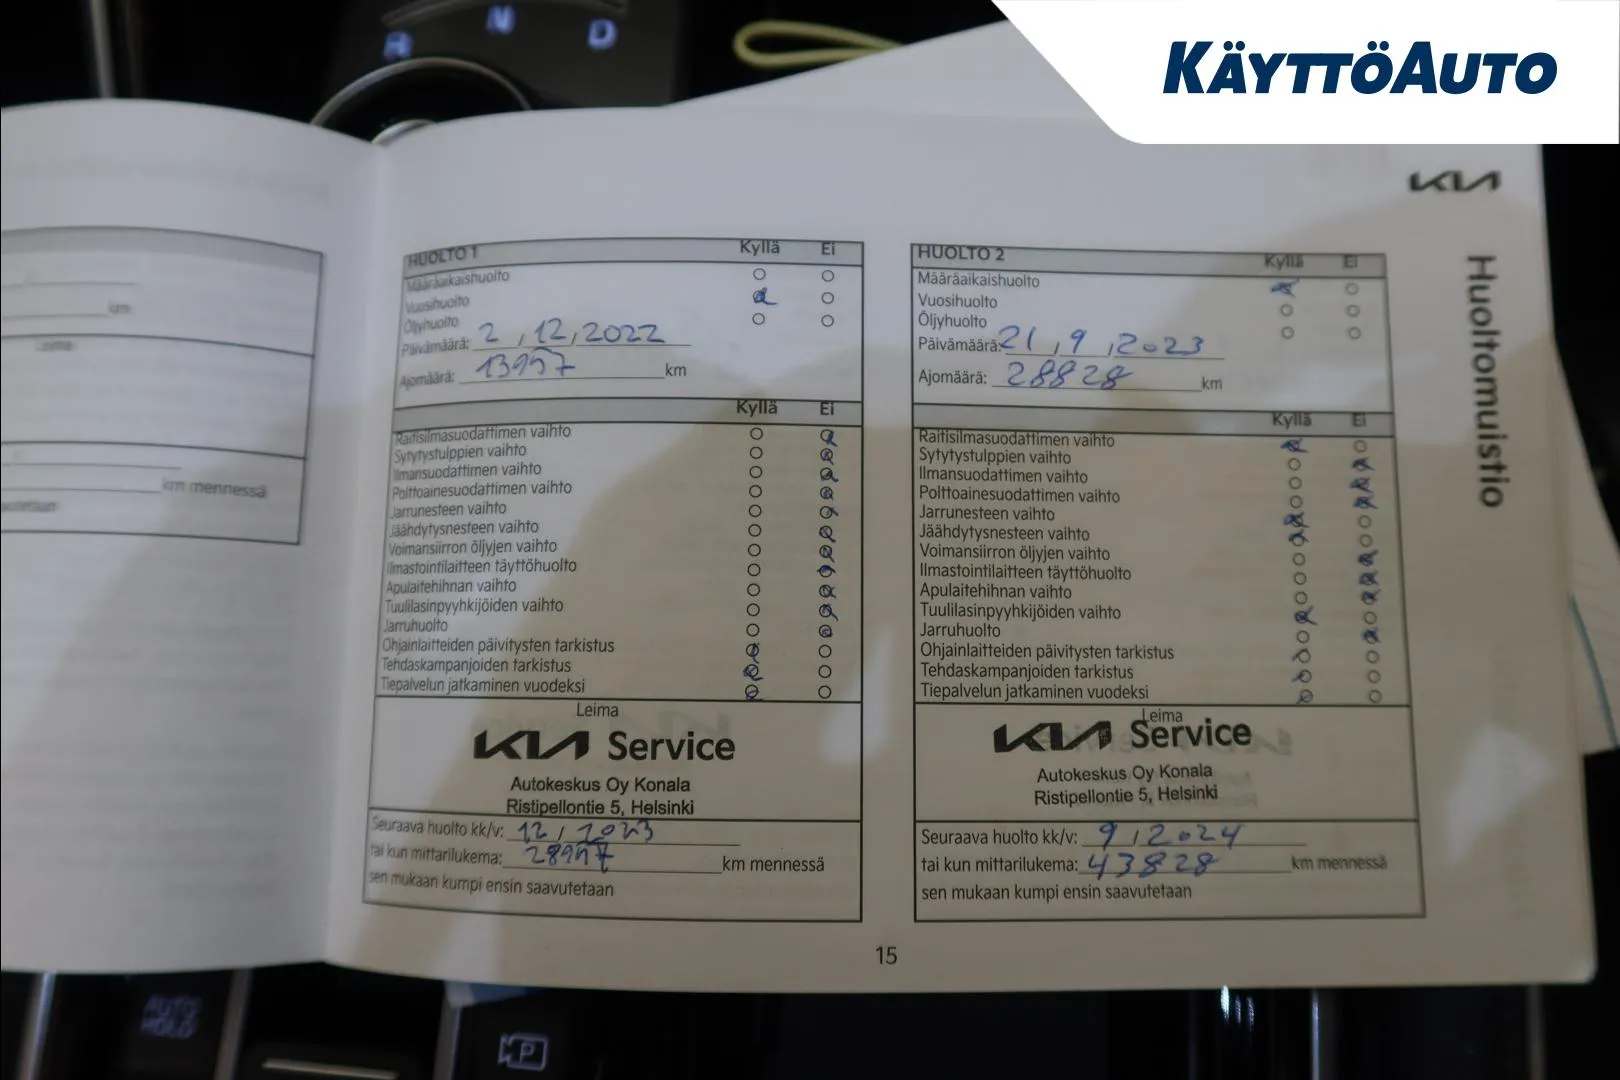 R N D
KÄYTTÖAUTO
KIA
Huoltomuistio
km
Leima
km mennessä
HUOLTO 1 Kyllä Ei
Määräaikaishuolto
Vuosihuolto
Öljyhuolto
Päivämäärä: 2 , 12 , 2022
Ajomäärä: 13957 km
Kyllä Ei
Raitisilmasuodattimen vaihto
Sytytystulppien vaihto
Ilmansuodattimen vaihto
Polttoainesuodattimen vaihto
Jarrunesteen vaihto
Jäähdytysnesteen vaihto
Voimansiirron öljyjen vaihto
Ilmastointilaitteen täyttöhuolto
Apulaitehihnan vaihto
Tuulilasinpyyhkijöiden vaihto
Jarruhuolto
Ohjainlaitteiden päivitysten tarkistus
Tehdaskampanjoiden tarkistus
Tiepalvelun jatkaminen vuodeksi
Leima
KIA Service
Autokeskus Oy Konala
Ristipellontie 5, Helsinki
Seuraava huolto kk/v: 12 / 2023
tai kun mittarilukema: 28957 km mennessä
sen mukaan kumpi ensin saavutetaan
HUOLTO 2 Kyllä Ei
Määräaikaishuolto
Vuosihuolto
Öljyhuolto
Päivämäärä: 21 , 9 , 2023
Ajomäärä: 28828 km
Kyllä Ei
Raitisilmasuodattimen vaihto
Sytytystulppien vaihto
Ilmansuodattimen vaihto
Polttoainesuodattimen vaihto
Jarrunesteen vaihto
Jäähdytysnesteen vaihto
Voimansiirron öljyjen vaihto
Ilmastointilaitteen täyttöhuolto
Apulaitehihnan vaihto
Tuulilasinpyyhkijöiden vaihto
Jarruhuolto
Ohjainlaitteiden päivitysten tarkistus
Tehdaskampanjoiden tarkistus
Tiepalvelun jatkaminen vuodeksi
Leima
KIA Service
Autokeskus Oy Konala
Ristipellontie 5, Helsinki
Seuraava huolto kk/v: 9 / 2024
tai kun mittarilukema: 43828 km mennessä
sen mukaan kumpi ensin saavutetaan
15
AUTO
HOLD
P